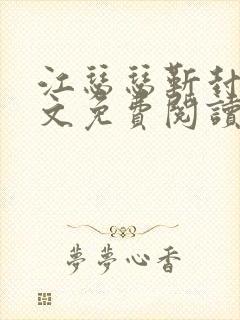 江瑟瑟靳封
文免費閱讀
夢夢心香